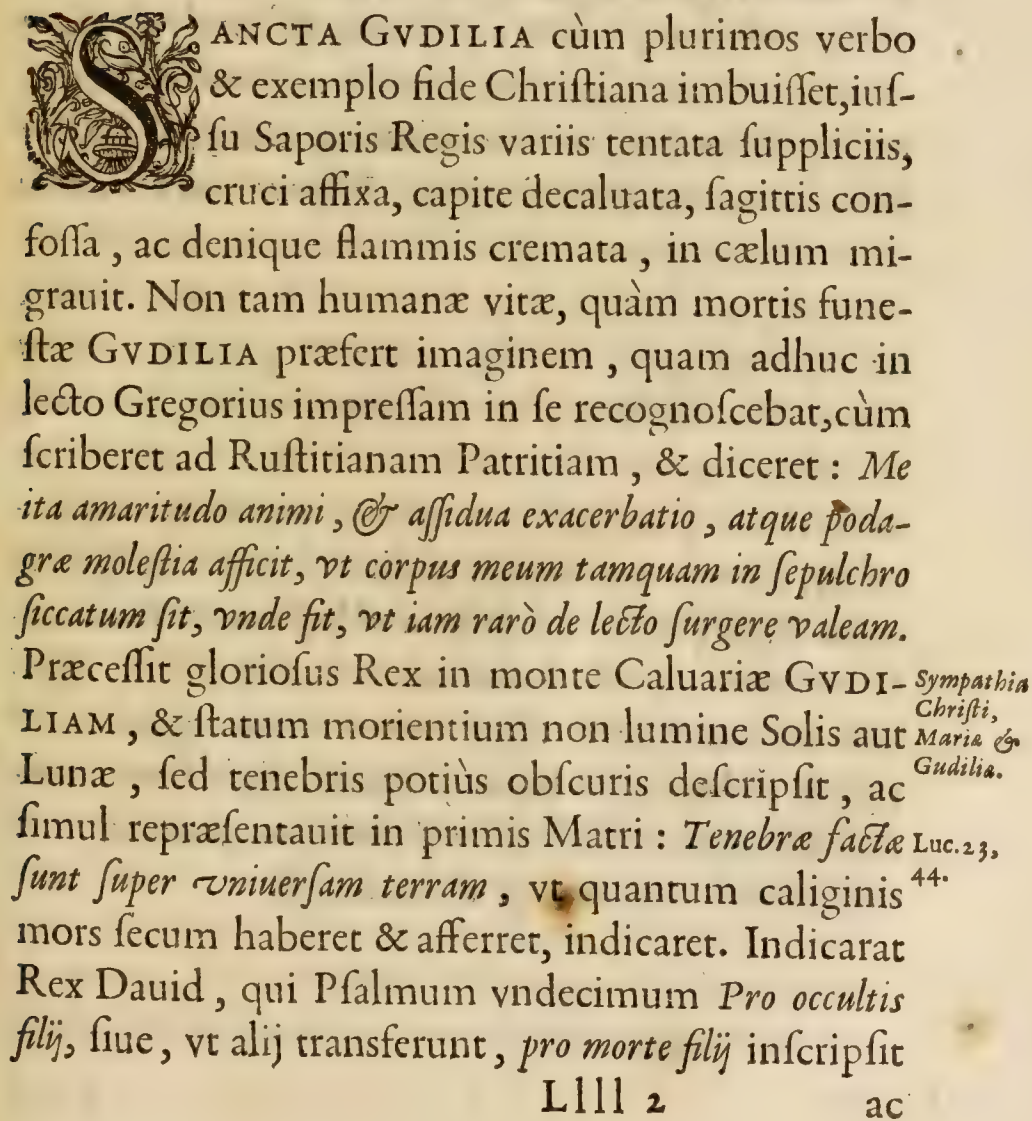 SANCTA GVDILIA cùm plurimos verbo
& exemplo fide Chriſtiana imbuiſſet,iuſ-
ſu Saporis Regis variis tentata ſuppliciis,
cruci affixa, capite decaluata, ſagittis con-
foſſa , ac denique flammis cremata , in cælum mi-
grauit. Non tam humanæ vitæ, quàm mortis fune-
ſtæ GVDILIA præfert imaginem , quam adhuc in
lecto Gregorius impreſſam in ſe recognoſcebat,cùm
ſcriberet ad Ruſtitianam Patritiam , & diceret : Me
ita amaritudo animi , & aſſidua exacerbatio , atque poda-
græ moleſtia afficit, vt corpus meum tamquam in ſepulchro
ſiccatum ſit, vnde fit, vt iam rarò de lecto ſurgere valeam.
Præceſſit glorioſus Rex in monte Caluariæ GVDI-
LIAM , & ſtatum morientium non lumine Solis aut
Lunæ , ſed tenebris potiùs obſcuris deſcripſit , ac
ſimul repræſentauit in primis Matri : Tenebræ factæ
ſunt ſuper vniuerſam terram , vt quantum caliginis
mors ſecum haberet & afferret, indicaret. Indicarat
Rex Dauid , qui Pſalmum vndecimum Pro occultis
filij, ſiue , vt alij transferunt , pro morte filij inſcripſit
Sympathia
Chriſti,
Mariæ &
Gudiliæ.
Luc.23,
44.
Llll 2
ac